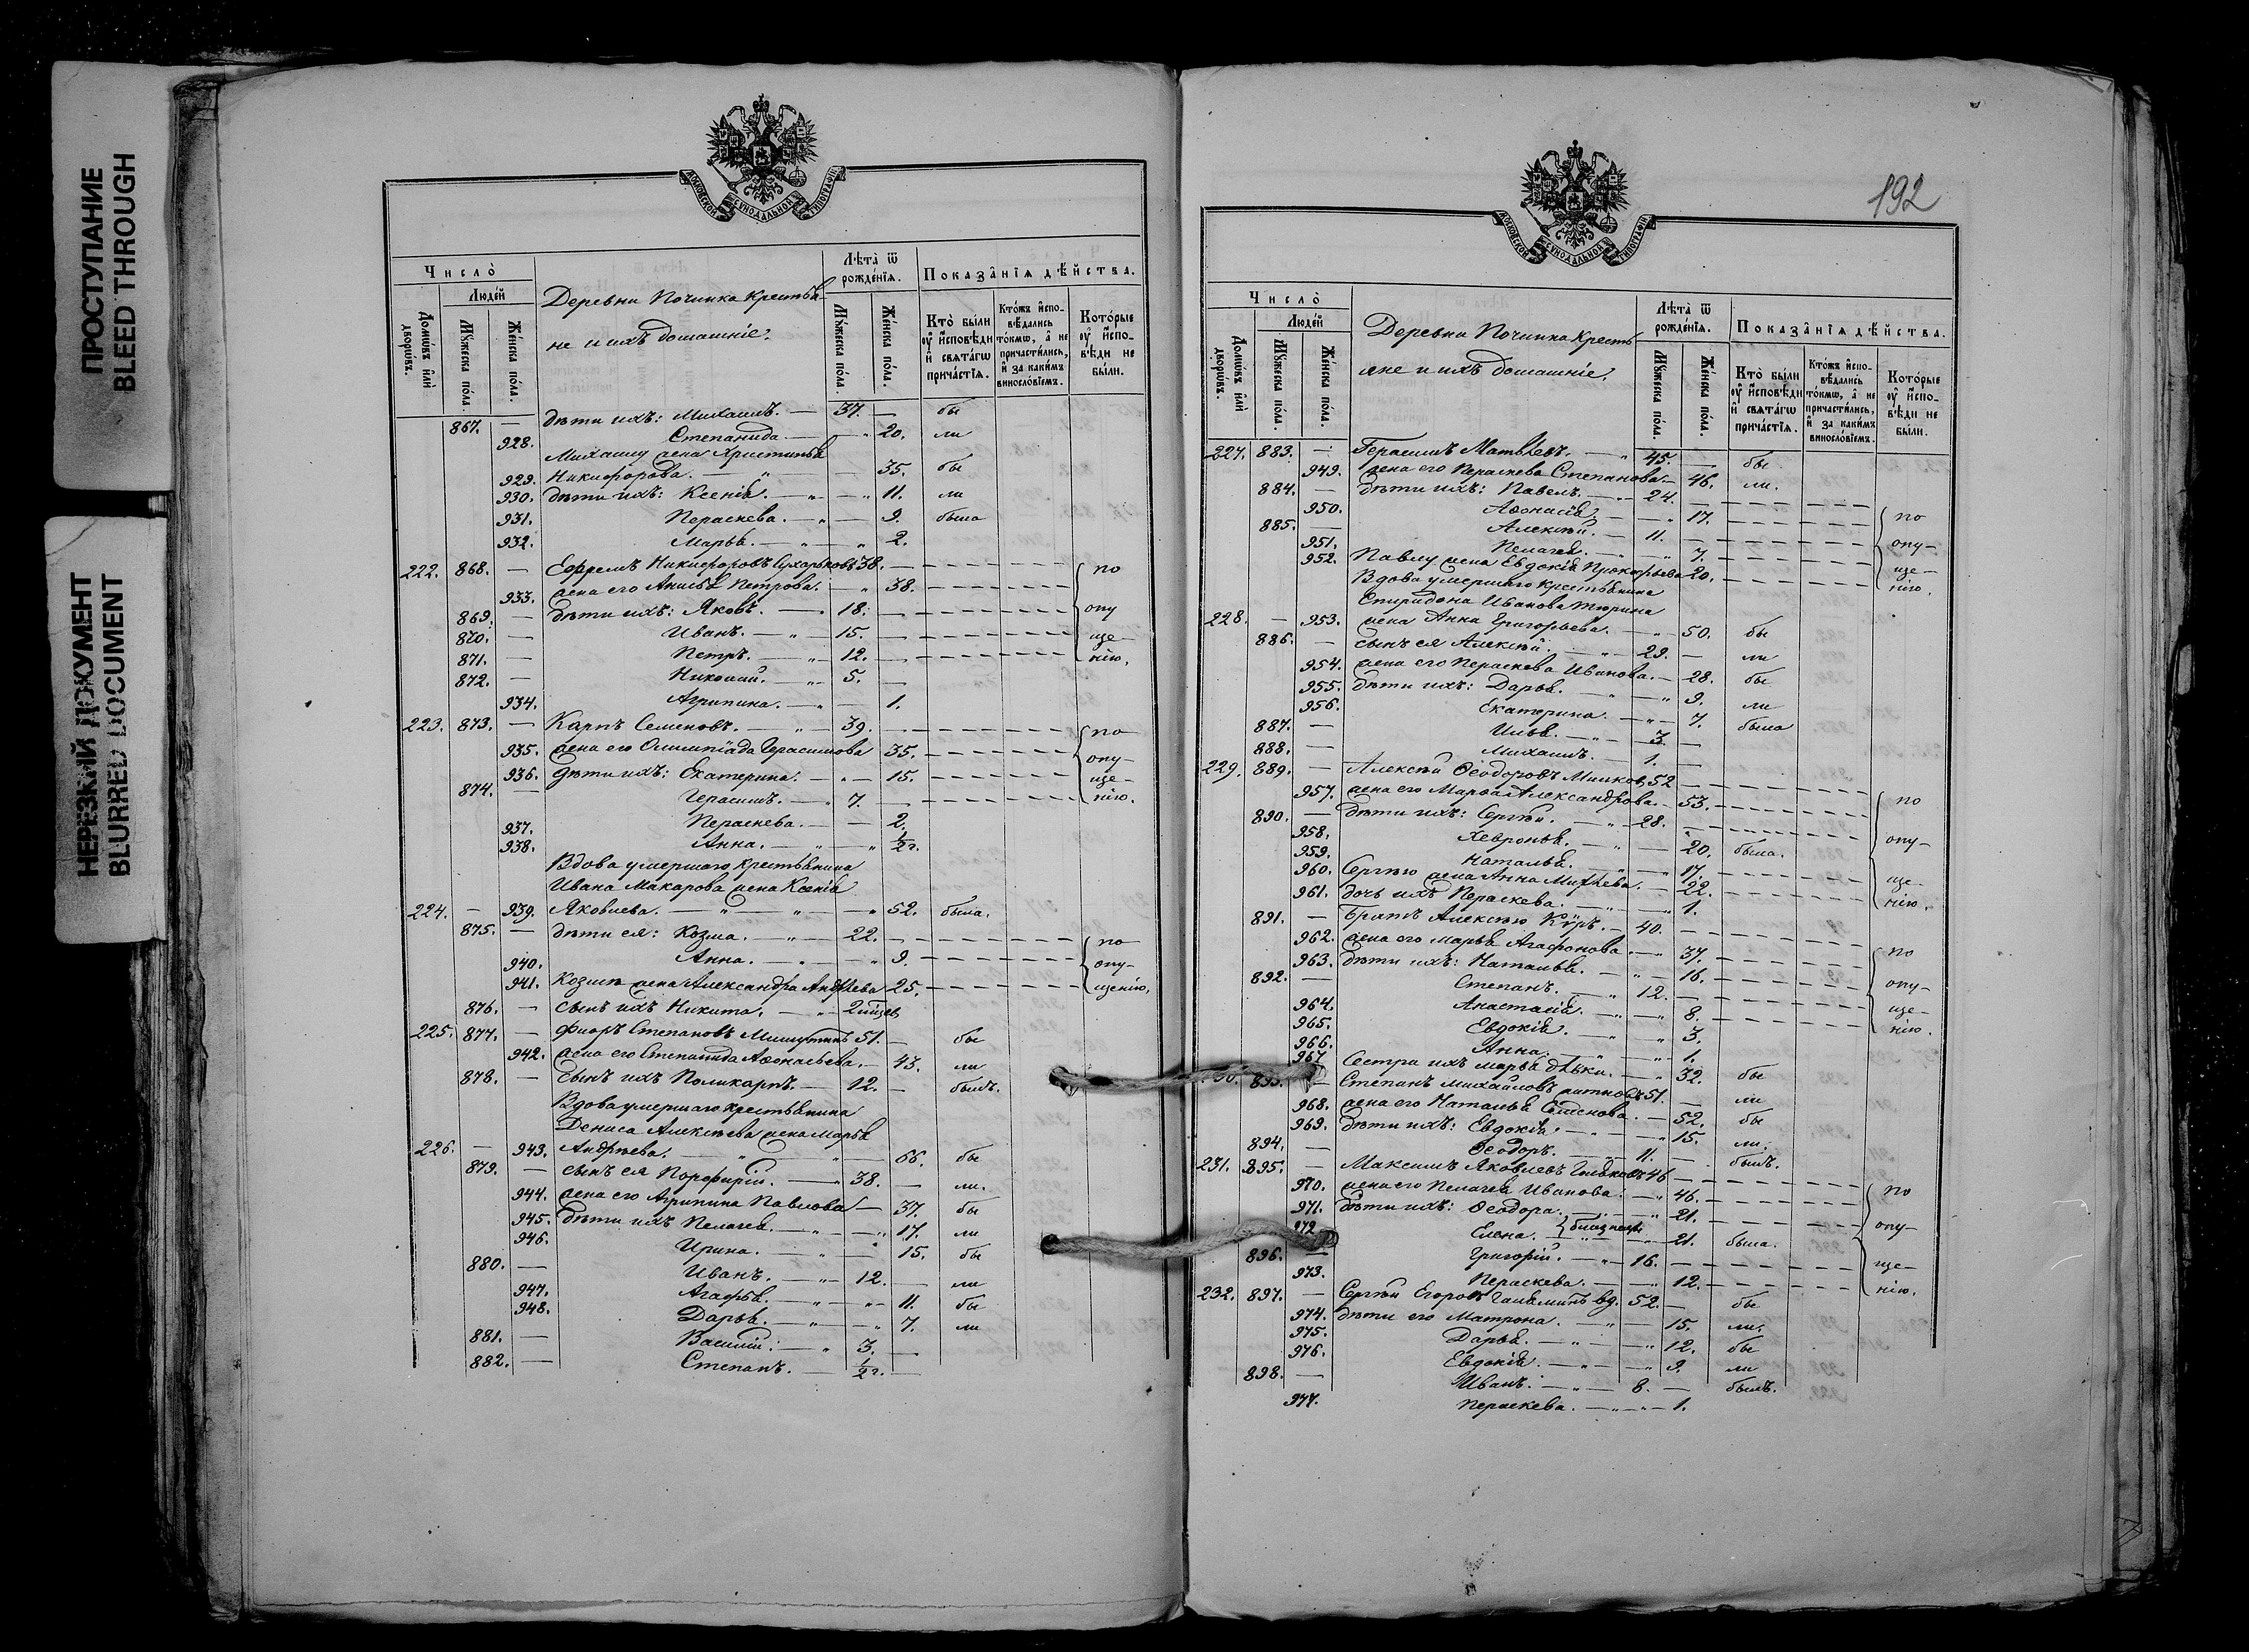 ПРОСТУПАНИЕ
BLEED THROUGH
НЕРЕЗКИЙ ДОКУМЕНТ
BLURRED DOCUMENT
МОСКОВСКОЙ СѴНОДАЛЬНОЙ ТИПОГРАФІИ
Число̀
Людей
Домѡвъ или дворѡвъ.
Мꙋжеска пола.
Женска пола.
Деревни Починка Крестья-
не и ихъ домашніе.
Лѣта̀ ѿ рожденїѧ.
Мꙋжеска пола.
Женска пола.
Показанїѧ дѣйства.
Кто̀ были оу҆ исповѣди и свѧтагѡ причастїѧ.
Ктожъ исповѣдались токмѡ, а не причастились, и за какимъ винословїемъ.
Которые оу҆ исповѣди не были.
867. — дѣти ихъ: Михаилъ. — 37. — бы
928. Степанида. — „ 20. ли
Михаилу жена Христинья
929. Никифорова. — „ — 35. бы
930. дѣти ихъ: Ксенія. — „ — „ 11. ли
931. Пераскева. — „ — 9. была
932. Марья. — „ — „ 2.
222. 868. — Ефремъ Никифоровъ Сухорьковъ 38. — по
933. жена его Анисья Петрова. — „ 38.
869. — дѣти ихъ: Яковъ. — 18. — опу
870. — Иванъ. — „ 15. — ще-
871. — Петръ. — „ 12. — нію.
872. — Николай. — „ 5. —
934. Агрипина. — „ — 1.
223. 873. — Карпъ Семеновъ. — „ 39. — по
935. жена его Олимпіада Герасимова 35. опу-
936. дѣти ихъ: Екатерина. — „ — 15. ще-
874. — Герасимъ. — „ 7. — нію.
937. Пераскева. — — 2.
938. Анна. — „ — „ 1/2 г.
Вдова умершаго крестьянина
Ивана Макарова жена Ксенія
224. — 939. Яковлева. — „ — „ — „ 52. была.
875. — дѣти ея: Козма. — „ — 22. — по
940. Анна. — „ — „ 9. опу-
941. Козмѣ жена Александра Андреева 25. щенію.
876. — сынъ ихъ Никита. — „ — 2 мѣсяц.
225. 877. — Флоръ Степановъ Мишутинъ 51. — бы
942. жена его Степанида Аѳонасьева. — 43. ли
878. — сынъ ихъ Поликарпъ. — 12. — былъ.
Вдова умершаго крестьянина
Дениса Алексѣева жена Марья
226. — 943. Андреева. — „ — „ — 66. бы
879. — сынъ ея Порфирій. — 38. — ли.
944. жена его Агрипина Павлова — 37. бы
945. дѣти ихъ Пелагея. — „ — „ 17. ли
946. Ирина. — „ — „ 15. бы
880. — Иванъ. — „ — 12. — ли
947. Агафья. — „ — „ 11. бы
948. Дарья. — „ — „ 7. ли
881. — Василій. — „ 3. —
882. — Степанъ. — 1/2 г. —
192
МОСКОВСКОЙ СѴНОДАЛЬНОЙ ТИПОГРАФІИ
Число̀
Людей
Домѡвъ или дворѡвъ.
Мꙋжеска пола.
Женска пола.
Деревни Починка Кресть
яне и ихъ домашніе.
Лѣта̀ ѿ рожденїѧ.
Мꙋжеска пола.
Женска пола.
Показанїѧ дѣйства.
Кто̀ были оу҆ исповѣди и свѧтагѡ причастїѧ.
Ктожъ исповѣдались токмѡ, а не причастились, и за какимъ винословїемъ.
Которые оу҆ исповѣди не были.
227. 883. — Герасимъ Матвѣевъ. — „ 45. — бы
949. жена его Пераскева Степанова. — 46. ли.
884. — дѣти ихъ: Павелъ. — „ 24. —
950. Аѳонасія — „ 17. по
885. — Алексѣй. — 11. — опу-
951. Пелагея. — „ 7. ще-
952. Павлу жена Евдокія Прокофьева 20. нію.
Вдова умершаго крестьянина
Спиридона Иванова Тюрина
228. — 953. жена Анна Григорьева. — „ 50. бы
886. — сынъ ея Алексѣй. — „ 29. — ли
954. жена его Пераскева Иванова. — 28. бы
955. дѣти ихъ: Дарья. — „ 9. ли
956. Екатерина. — „ — 7. была
887. — Илья. — „ 3. —
888. — Михаилъ. — 1. —
229. 889. — Алексѣй Ѳеодоровъ Милков. 52 — по
957. жена его Марѳа Александрова. — 53.
890. — дѣти ихъ: Сергѣй. — „ 28. — опу-
958. Хевронья. — „ — 20. была.
959. Наталья. — „ — 17. ще-
960. Сергѣю жена Анна Михѣева. — 22.
961. дочь ихъ Пераскева. — „ — „ 1. нію.
891. — братъ Алексѣю Кѵръ. — 40. —
962. жена его Марья Агафонова. — „ 37. по
963. дѣти ихъ: Наталья. — „ — 16. опу-
892. — Степанъ. — „ 12. —
964. Анастасія. — „ — „ 8. ще-
965. Евдокія. — „ — „ 3. нію.
966. Анна. — „ — 1.
967 Сестра ихъ Марья дѣвка. — „ 32. бы
230. 893. — Степанъ Михайловъ 51. — ли
968. жена его Наталья Семенова. — 52. бы
969. дѣти ихъ: Евдокія. — „ — „ 15. ли.
894. — Ѳеодоръ. — „ 11. — былъ.
231. 895. — Максимъ Яковлевъ 46 — по
970. жена его Пелагея Иванова. — „ 46.
971. дѣти ихъ: Ѳеодора. — „ 21. опу-
972. Елена. } близнецы — 21. была.
896. — Григорій. — „ 16. — ще-
973. Пераскева. — — „ 12. нію.
232. 897. — Сергѣй Егоровъ вд. 52. — бы
974. дѣти его Матрона. — „ — 15. ли.
975. Дарья. — „ — „ 12. бы
976. Евдокія. — „ — „ 9. ли
898. — Иванъ. — „ — 8. — былъ.
977. Пераскева. — „ — „ — 1.